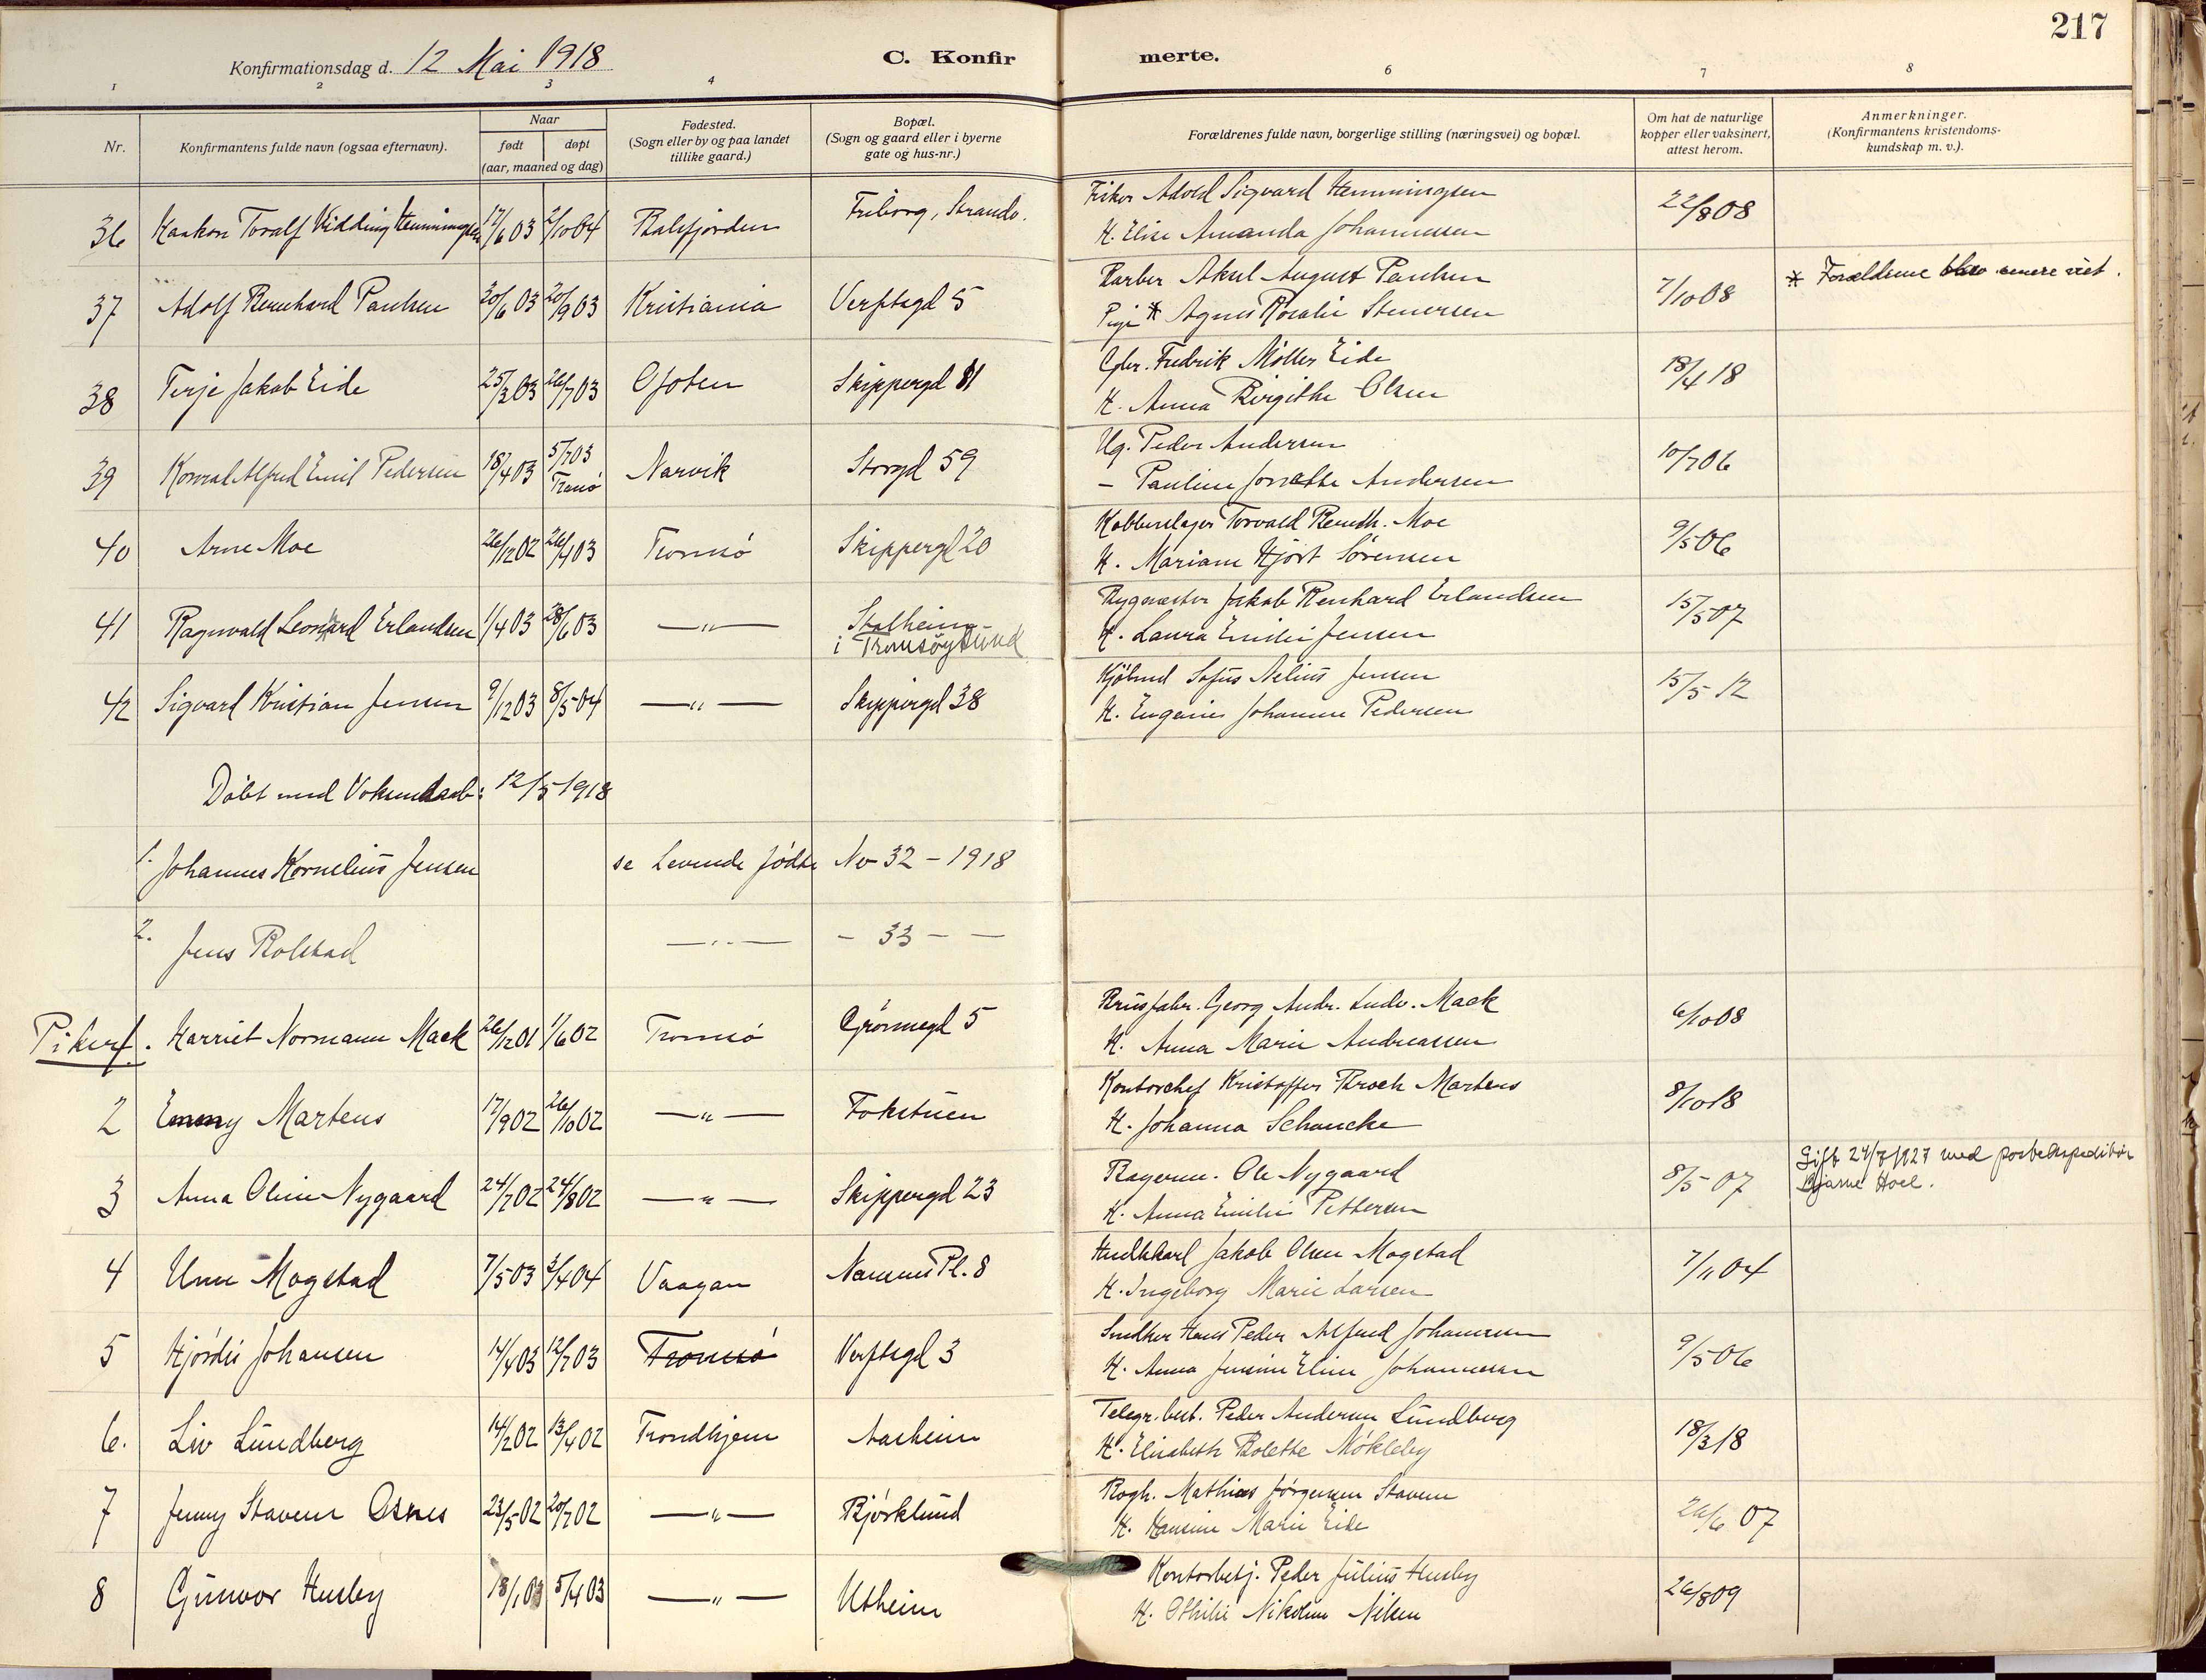 217
Konfirmationsdag d. 12 Mai 1918
C. Konfirmerte.
1 2 3 4 6 7 8
Nr.
Konfirmantens fulde navn (ogsaa efternavn).
Naar
født døpt
(aar, maaned og dag)
Fødested.
(Sogn eller by og paa landet
tillike gaard.)
Bopæl.
(Sogn og gaard eller i byerne
gate og hus-nr.)
Forældrenes fulde navn, borgerlige stilling (næringsvei) og bopæl.
Om hat de naturlige
kopper eller vaksinert,
attest herom.
Anmerkninger.
(Konfirmantens kristendoms-
kundskap m. v.).
36 Haakon Toralf Hemmingsen 17/6 03 2/10 04 Balsfjorden Friborg, Strandv. Sigvard Hemmingsen 22/8 08
H. Elise Amanda Johannessen
37 Adolf Bernhard Paulsen 20/6 03 20/9 03 Kristiania Verftsgd 5 Barber Aksel August Paulsen 7/10 08 * Forældrene blev senere viet.
Pige * Agnes Rosalie Stenersen
38 Terje Jakob Eide 25/3 03 26/7 03 Ofoten Skippergd 81 Fredrik Møller Eide 18/4 18
H. Anna Birgithe Olsen
39 Konrad Alfred Emil Pedersen 18/4 03 5/7 03 Narvik Storgd 59 Ug. Peder Andersen 10/7 06
Tranø
- Pauline Jonette Andersen
40 Arne Moe 26/12 02 26/4 03 Tromsø Skippergd 20 Kobberslager Torvald Bernth. Moe 9/5 06
H. Mariane Hjort Sørensen
41 Ragnvald Leonhard Erlandsen 1/4 03 28/6 03 —"— Stalheim Bygmester Jakob Benhard Erlandsen 15/5 07
i Tromsøysund
H. Laura Emilie Jensen
42 Sigvard Kristian Jensen 9/12 03 8/5 04 —"— Skippergd 38 Kjøbmd Sofus Nelius Jensen 15/5 12
H. Eugenie Johanne Pedersen
Døbt med Voksendaab: 12/5 1918
1. Johannes Kornelius Jensen se Levende fødte No 32 - 1918
2. Jens Bolstad —"— - 33 - -
Piker 1. Harriet Normann Mack 26/12 01 1/6 02 Tromsø Grønnegd 5 Brusfabr. Georg Andr. Ludv. Mack 6/10 08
H. Anna Marie Andreassen
2 Emmy Martens 17/9 02 26/10 02 —"— Tokstuen Kontorchef Kristoffer Broch Martens 8/10 18
H. Johanna Schancke
3 Anna Oline Nygaard 24/7 02 24/8 02 —"— Skippergd 23 Bagerm. Ole Nygaard 8/5 07 Gift 24/7 1927 med postekspeditør
Bjarne Hoel.
H. Anna Emilie Pettersen
4 Unni Mogstad 7/5 03 3/4 04 Vaagan Nansens Pl. 8 Jakob Olsen Mogstad 7/11 04
H. Ingeborg Marie Larsen
5 Hjørdis Johansen 14/4 03 12/7 03 Tromsø Verftsgd 3 Snedker Hans Peder Alfred Johannsen 9/5 06
H. Anna Jensine Eline Johannessen
6. Liv Lundberg 14/2 02 13/4 02 Trondhjem Aasheim Telegr.best. Peder Andersen Lundberg 18/3 18
H. Elisabeth Bolette Møkleby
7 Jenny Stavem Osnes 23/5 02 20/7 02 —"— Bjørklund Bogh. Mathias Jørgensen Stavem 26/6 07
H. Hansine Marie Eide
8 Gunvor Husby 18/1 03 5/4 03 —"— Utheim Kontorbetj. Peder Julius Husby 26/8 09
H. Othilie Nikoline Nilsen